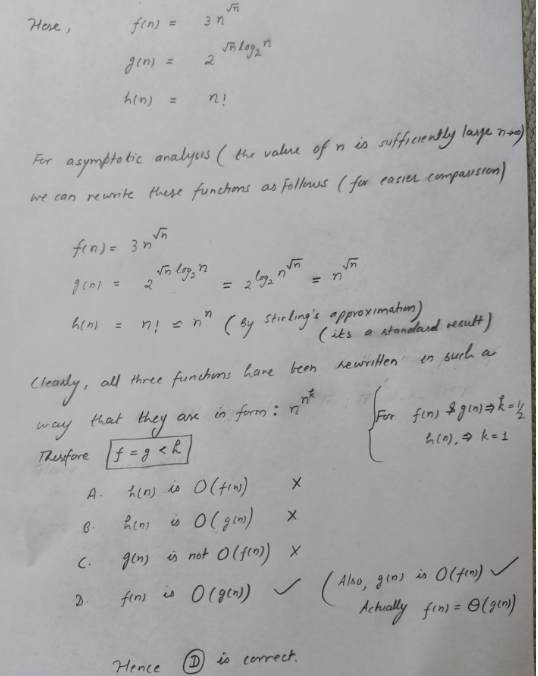 Here, f(n) = 3 n^√n
g(n) = 2^√n log₂n
h(n) = n!
For asymptotic analysis ( the value of n is sufficiently large n→∞)
we can rewrite these functions as follows ( for easier comparision)
f(n) = 3 n^√n
g(n) = 2^√n log₂n = 2^log₂ n^√n = n^√n
h(n) = n! ≤ n^n ( By Stirling's approximation)
( its a standard result)
Clearly, all three functions have been rewritten in such a
way that they are in form : n^n^k { For f(n) & g(n) ⇒ k = 1/2
h(n), ⇒ k = 1
Therefore f = g < h
A. h(n) is O(f(n)) X
B. h(n) is O(g(n)) X
C. g(n) is not O(f(n)) X
D. f(n) is O(g(n)) ✓ ( Also, g(n) is O(f(n) ✓
Actually f(n) = Θ(g(n))
Hence D is correct.